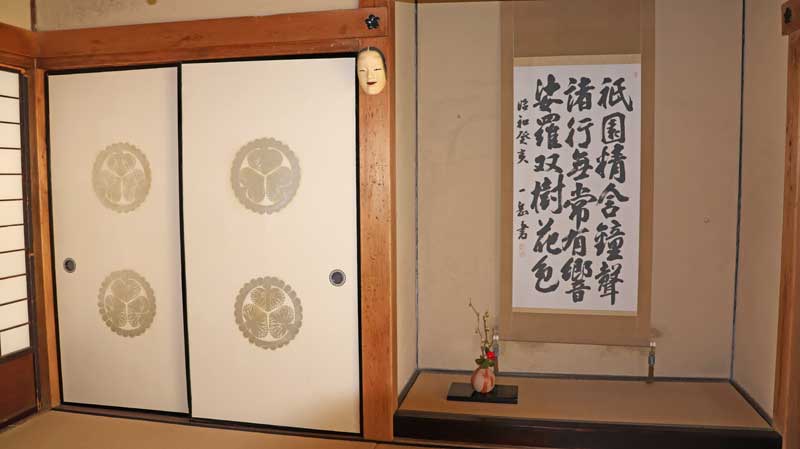 祇園精舎鐘聲
諸行無常有響
娑羅双樹花色
昭和癸亥 一岳書